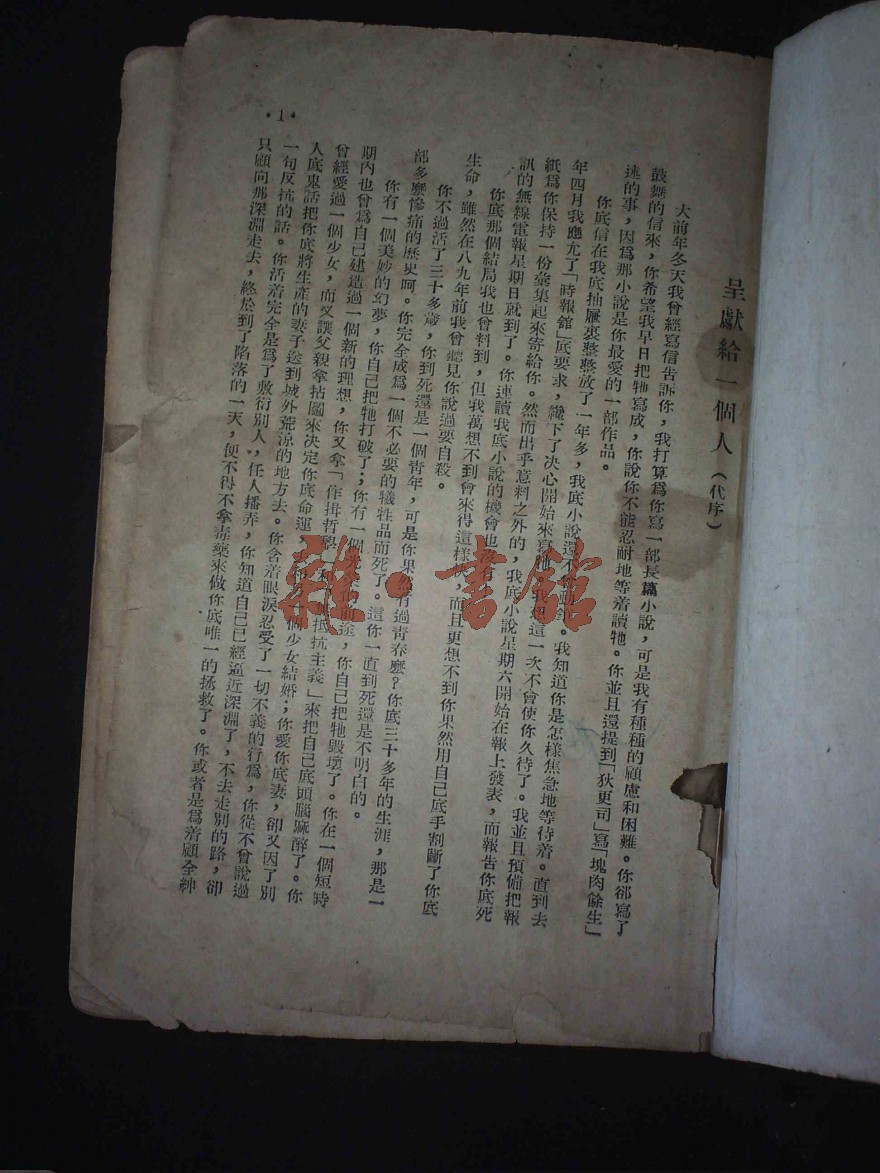 呈獻給一個人（代序）
大前年冬天我曾經寫信告訴你，我打算爲你寫一部長篇小說，可是我有種種的顧慮和困難。你卻寫了
鼓舞的信來，你希望我早日把牠寫成，你說你不能忍耐地等着讀牠。你並且還提到「狄更司」寫「塊肉餘生」
述的事，因爲那小說是你最愛的一部作品。
你底信在我底抽屜裏整整放了一年多，我底小說還不曾動。我知道你是怎樣焦急地等待着。直到去
年四月我應允了「時報館」底要求，纔下了决心開始來寫牠。我想這一次不會使你久待了。我並且預備把報
紙爲你保持一份彙集起來寄給你。然而出乎意料之外的，我底小說星期六開始在報上發表，而報告你底死
訊的無線電報星期日就到了。你連讀我底小說的機會也沒有
你底那個結局我也曾料到，但我萬想不到會來得這樣快，而且更想不到你果然用自己底手割斷了你底
生命，雖然在八九年前我曾聽見你說過要自殺。
你不過活了三十多歲，你到死還是一個青年，可是你果然有過青春麽？你底三十多年的生涯，那是一
部多麽慘痛的歷史呵。你完全成爲一個不必要的犧牲品而死了。這你一直到死還是不明白的。
你有一個美妙的幻夢，你自己把牠打破了；你有一個前途，你自己把牠毀壞了。你在一個短時
期內也曾爲自己建造過一個新的理想，你又拿「作揖哲學」和抵抗主義」來把自己底頭腦麻醉了。你
曾經愛過一個少女，而又讓父親拿拈鬮來決定你底命運，去和另一個少女結婚；你愛你底妻，卻又因了別
人底鬼話把你底將生產的妻子送到城外荒涼的地方去。你含着眼淚忍受了一切不義的行爲，你從不曾說過
一句反抗的話。你活着完全是爲了敷衍別人，任人播弄，你知道自己已經逼近深淵了，不去走別的路，卻
只顧向那深淵走去，終於到了陷落的一天，便不得不拿毒藥來做你底唯一的拯救了。你或者是爲着顧全紳
·1·
雜·書館